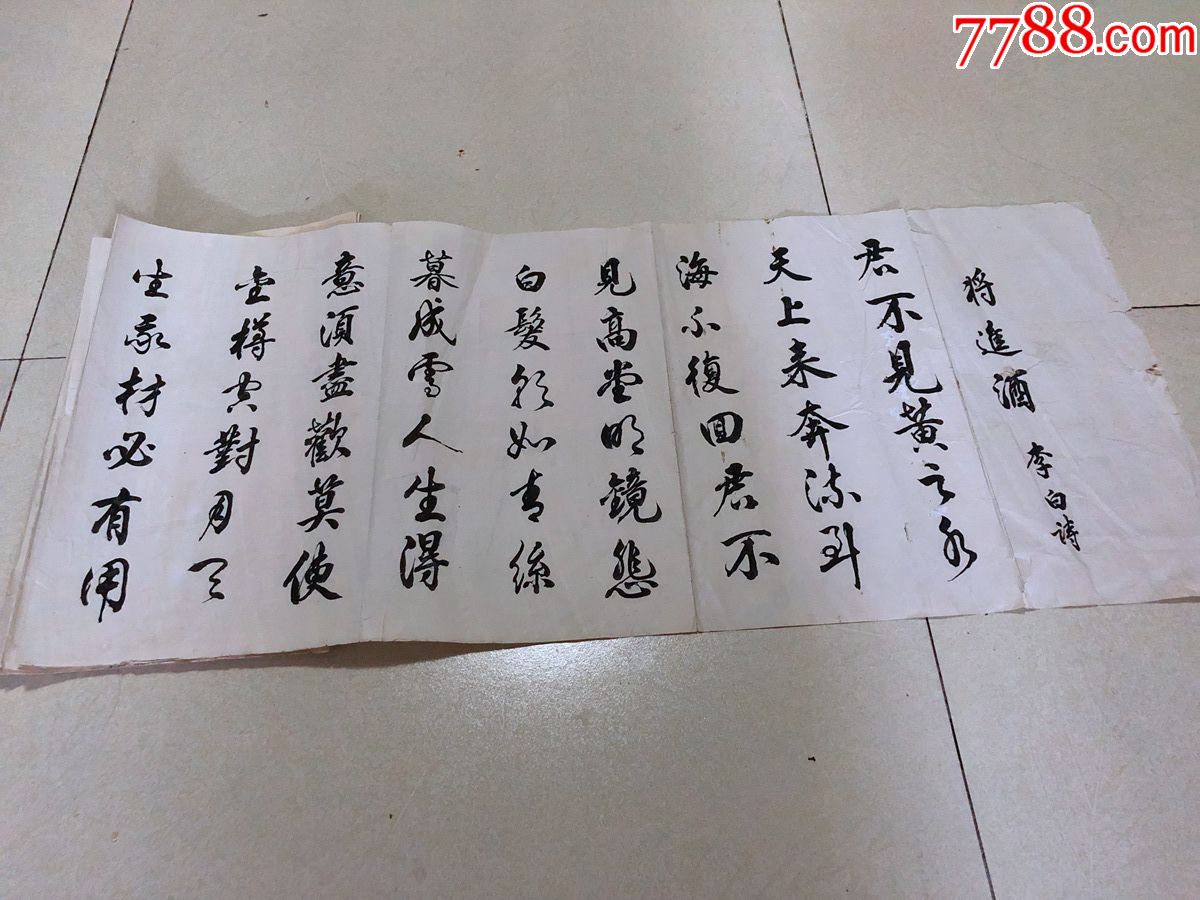 将進酒 李白詩
君不見黃之水
天上来奔流到
海不復回君不
見高堂明鏡悲
白髮朝如青絲
暮成雪人生得
意須盡歡莫使
金樽空對月天
生我材必有用
7788.com